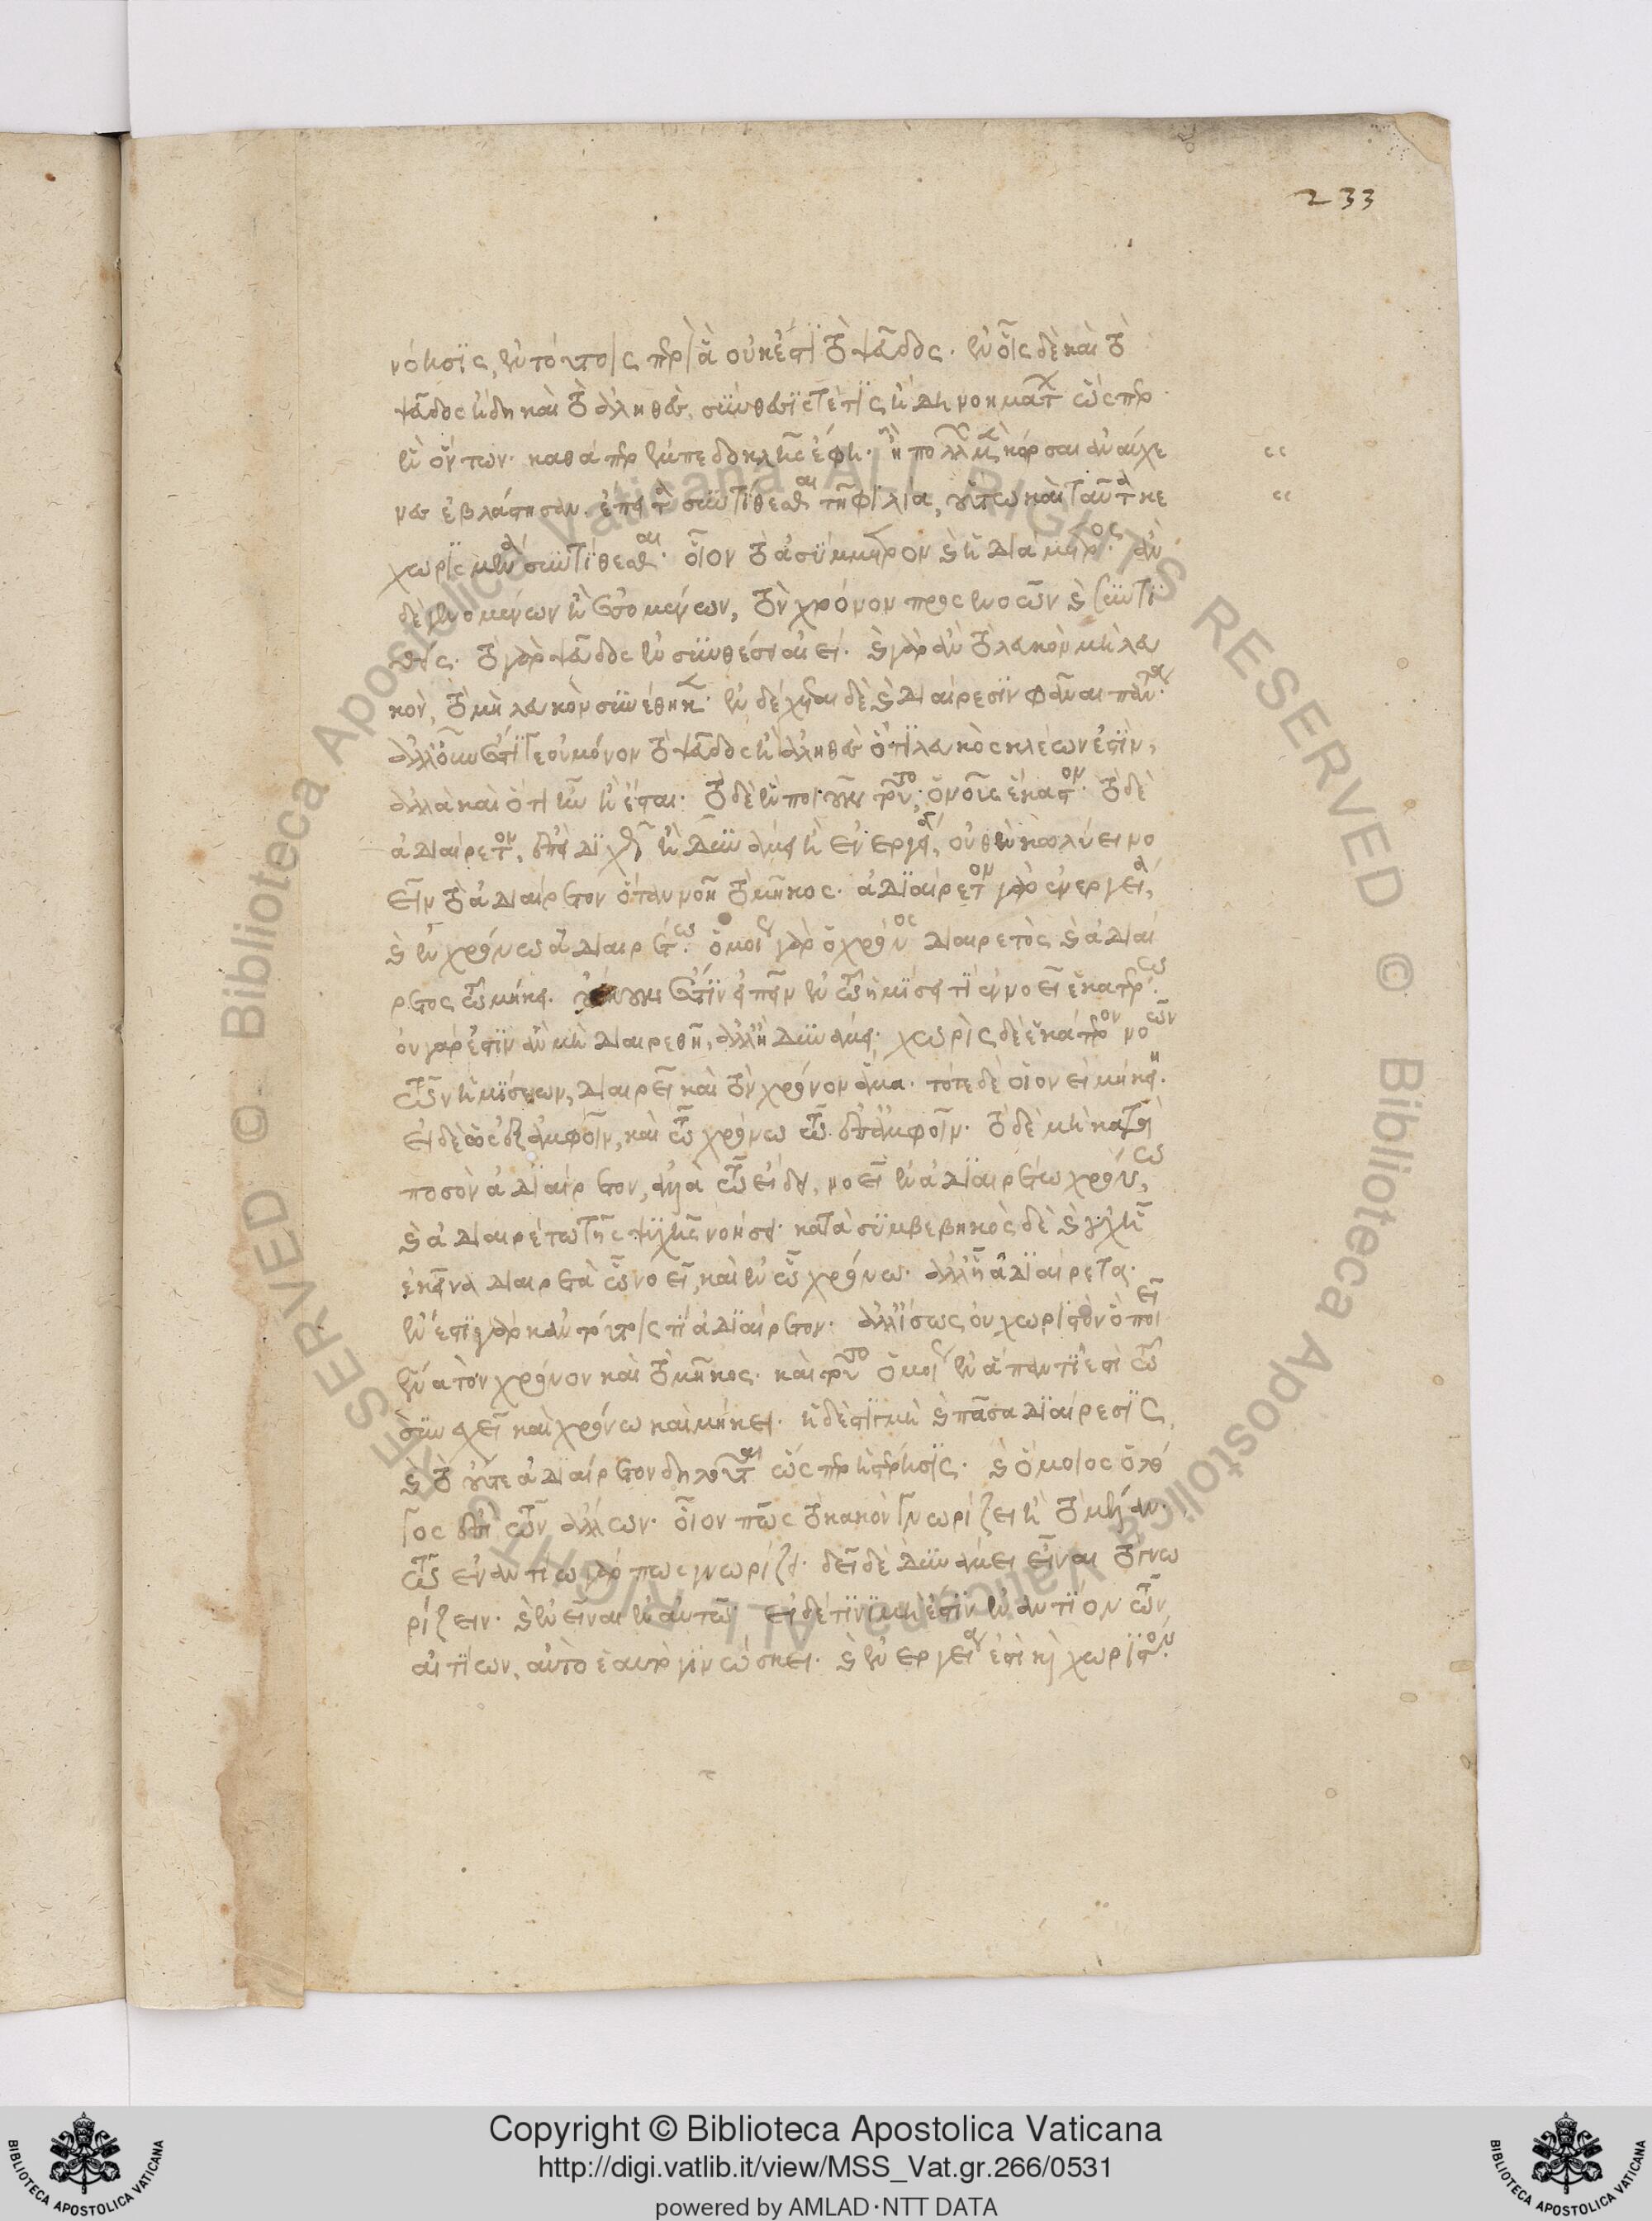 νόησις, ἐν τούτοις περὶ ἃ οὐκ ἔστι τὸ ψεῦδος. ἐν οἷς δὲ καὶ τὸ
ψεῦδος ἤδη καὶ τὸ ἀληθὲς, σύνθεσίς τις ἤδη νοημάτων ὥσπερ
ἓν ὄντων. καθάπερ ἐμπεδοκλῆς ἔφη. ᾗ πολλῶν μὲν κόρσαι ἀναύχε
νες ἐβλάστησαν. ἔπειτα συντίθεσθαι τῇ φιλία, οὕτω καὶ ταῦτα κε
χωρισμένα συντίθεσθαι. οἷον τὸ ἀσύμμετρον καὶ ἡ διάμετρος. ἂν
δὲ γινομένων ἢ ἐσομένων, τὸν χρόνον προσεννοῶν καὶ συντι
θείς. τὸ γὰρ ψεῦδος ἐν συνθέσει ἀεί. καὶ γὰρ ἂν τὸ λευκὸν μὴ λευ
κὸν, τὸ μὴ λευκὸν συνέθηκεν. ἐνδέχεται δὲ καὶ διαίρεσιν φάναι πάντα.
ἀλλ' οὖν ἔστι γε οὐ μόνον τὸ ψεῦδος ἢ ἀληθὲς ὅτι λευκὸς κλέων ἐστὶν,
ἀλλὰ καὶ ὅτι ἦν ἢ ἔσται. τὸ δὲ ἓν ποιοῦν τοῦτο, ὁ νοῦς ἕκαστον. τὸ δὲ
ἀδιαίρετον, ἐπεὶ διχῶς ἢ δυνάμει ἢ ἐνεργεία, οὐθὲν κωλύει νο
εῖν τὸ ἀδιαίρετον ὅταν νοῇ τὸ μῆκος. ἀδιαίρετον γὰρ ἐνεργεία,
καὶ ἐν χρόνω ἀδιαιρέτω. ὁμοίως γὰρ ὁ χρόνος διαιρετὸς καὶ ἀδιαί
ρετος τῶ μήκει. οὔκουν ἔστιν εἰπεῖν ἐν τῶ ἡμίσει τί ἐννοεῖ ἑκατέρω.
οὐ γάρ ἐστιν ἂν μὴ διαιρεθῇ, ἀλλ' ἢ δυνάμει. χωρὶς δὲ ἑκάτερον νοῶν
τῶν ἡμίσεων, διαιρεῖ καὶ τὸν χρόνον ἅμα. τότε δὲ οἷον εἰ μήκη.
εἰ δὲ ὡς ἐξ ἀμφοῖν, καὶ τῶ χρόνω τῶ ἐπ' ἀμφοῖν. τὸ δὲ μὴ κατὰ
ποσὸν ἀδιαίρετον, ἀλλὰ τῶ εἴδει, νοεῖ ἐν ἀδιαιρέτω χρόνω,
καὶ ἀδιαιρέτω τῆς ψυχῆς νοήσει. κατὰ συμβεβηκὸς δὲ καὶ οὐχ ᾗ
ἐκεῖνα διαιρετὰ ὧ νοεῖ, καὶ ἐν ὧ χρόνω. ἀλλ' ᾗ ἀδιαίρετα.
ἔνεστι γὰρ κἀν τούτοις τι ἀδιαίρετον. ἀλλ' ἴσως οὐ χωριστὸν ὃ ποιεῖ
ἕνα τὸν χρόνον καὶ τὸ μῆκος. καὶ τοῦτο ὁμοίως ἐν ἅπαντί ἐστι τῶ
συνεχεῖ καὶ χρόνω καὶ μήκει. ἡ δὲ στιγμὴ καὶ πᾶσα διαίρεσις,
καὶ τὸ οὕτως ἀδιαίρετον δηλοῦται ὥσπερ ἡ στέρησις. καὶ ὅμοιος ὁ λό
γος ἐπὶ τῶν ἄλλων. οἷον πῶς τὸ κακὸν γνωρίζει ἢ τὸ μέλαν.
τῶ ἐναντίω γάρ πως γνωρίζει. δεῖ δὲ δυνάμει εἶναι τὸ γνω
ρίζειν. καὶ ἐνεῖναι ἐν αὐτῶ. εἰ δέ τινι μή ἐστιν ἐναντίον τῶν
αἰτίων, αὐτὸ ἑαυτὸ γινώσκει. καὶ ἐνεργεία ἐστὶ καὶ χωριστόν.
233
Copyright © Biblioteca Apostolica Vaticana
http://digi.vatlib.it/view/MSS_Vat.gr.266/0531
powered by AMLAD·NTT DATA
BIBLIOTECA APOSTOLICA VATICANA
BIBLIOTECA APOSTOLICA VATICANA